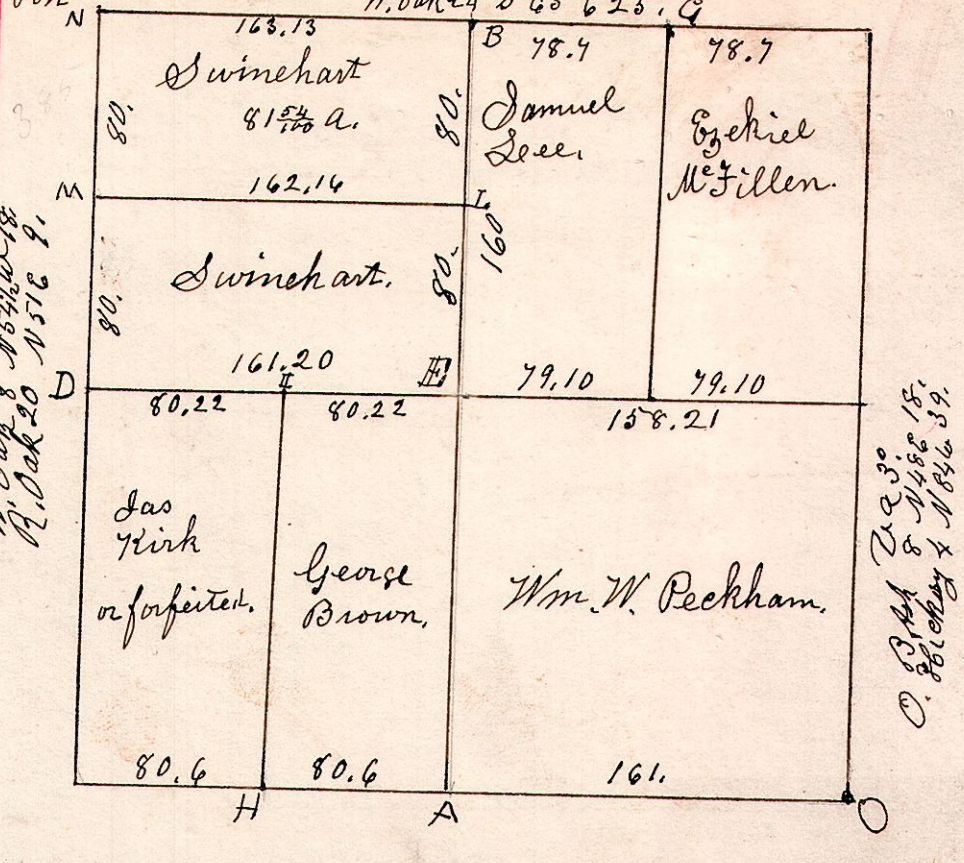 N
163.13
B
G
78.7
78.7
Swinehart
81 54/100 A.
80.
80.
Samuel
Lee.
Ezekiel
McFillen.
M
162.16
L
160
Swinehart.
80.
80.
D
161.20
I
E
79.10
79.10
80.22
80.22
158.21
Jas
Kirk
or forfeited.
George
Brown.
Wm. W. Peckham.
80.6
80.6
161.
H
A
O
R. Oak 20 N 51 E 9.
O. B. Ash 8 N 48 E 18.
Hickory 4 N 84 W 39.